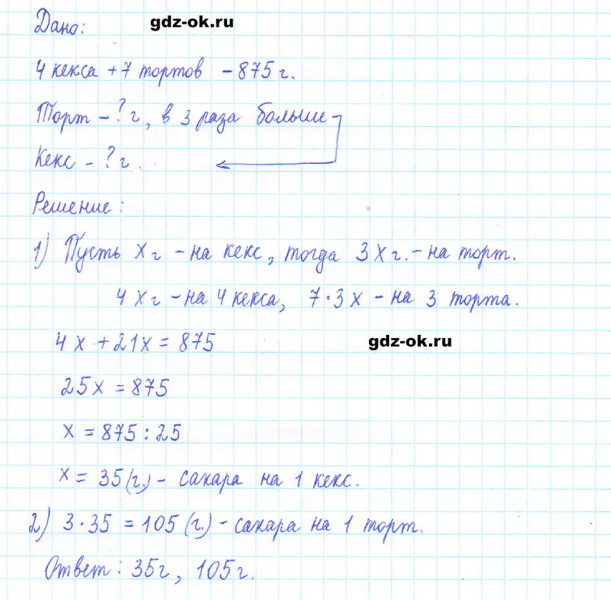 gdz-ok.ru
Дано:
4 кекса + 7 тортов - 875 г.
Торт - ? г, в 3 раза больше
Кекс - ? г.
Решение:
1) Пусть х г - на кекс, тогда 3 х г. - на торт.
4 х г - на 4 кекса, 7 · 3 х - на 3 торта.
4 х + 21 х = 875
gdz-ok.ru
25 х = 875
х = 875 : 25
х = 35 (г.) - сахара на 1 кекс.
2) 3 · 35 = 105 (г.) - сахара на 1 торт.
Ответ: 35 г, 105 г.